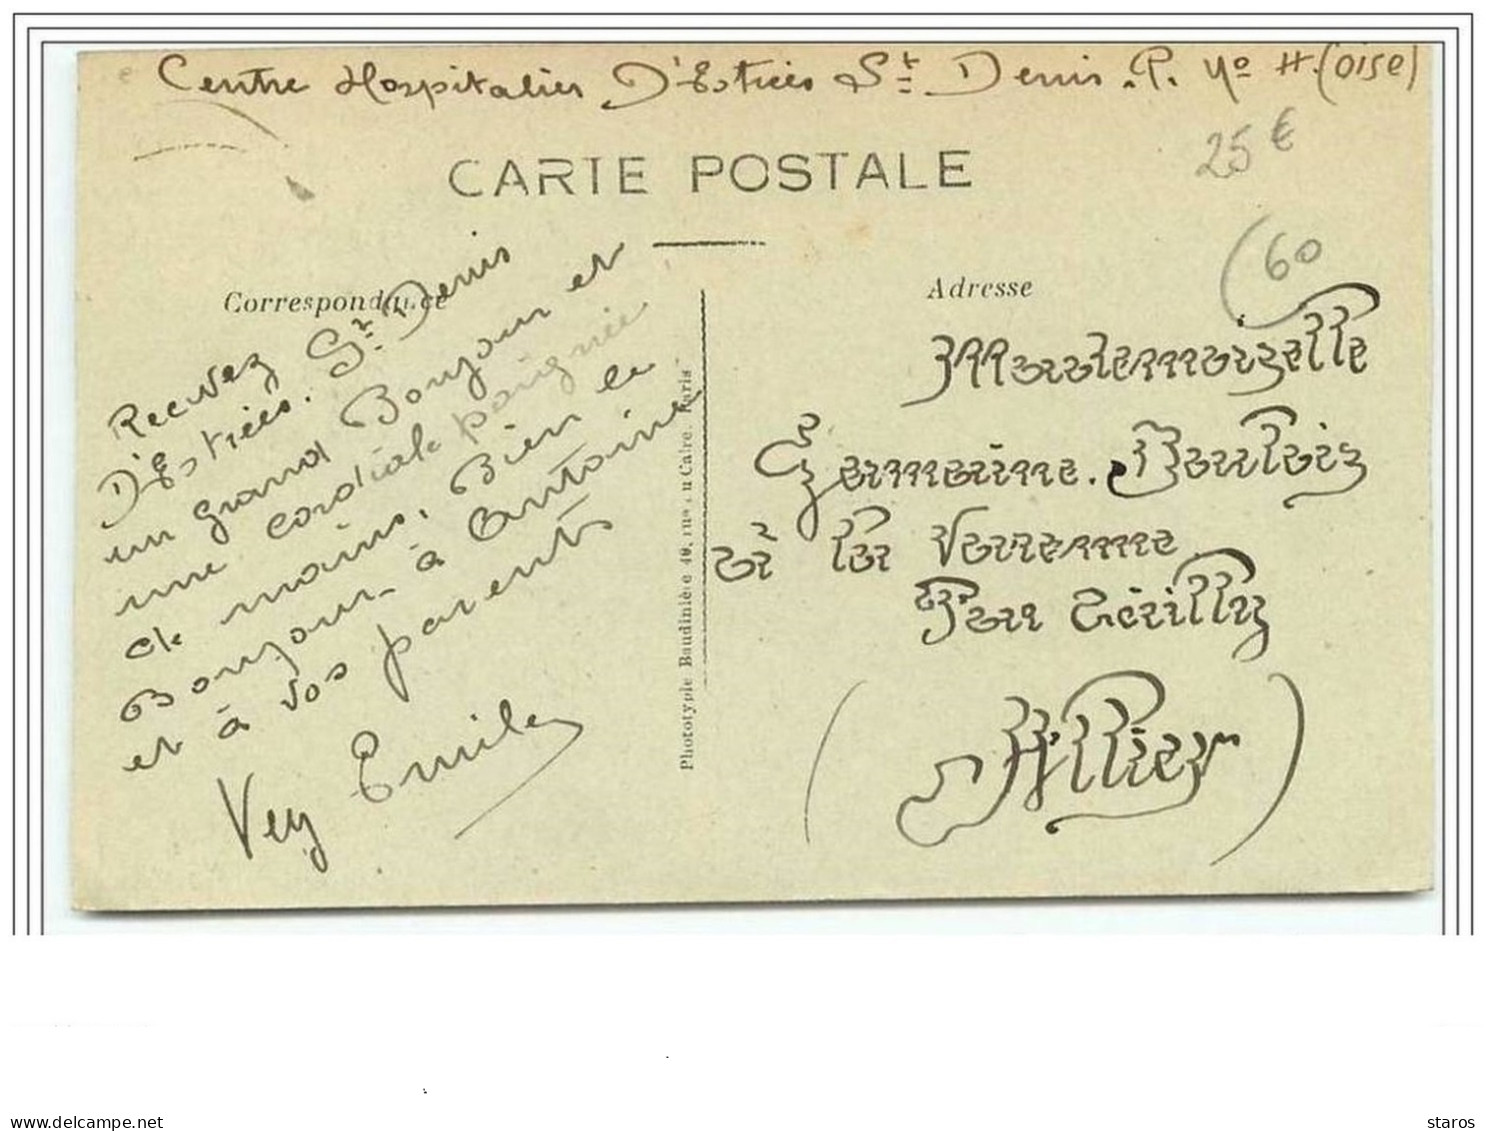 Centre Hospitalier D'Estrées St Denis. P. No H. (oise)
25 €
CARTE POSTALE
(60
Correspondance
Recevez
D'Estrées. St Denis
un grand Bonjour et
une cordiale poignée
de mains. Bien le
Bonjour à Antoine
et à vos parents
Vey Emile
Phototypie Baudinière 40, rue du Caire. Paris
Adresse
Mademoiselle
Germaine.
à la Varenne
Par Cérilly
(Allier)
delcampe.net
staros